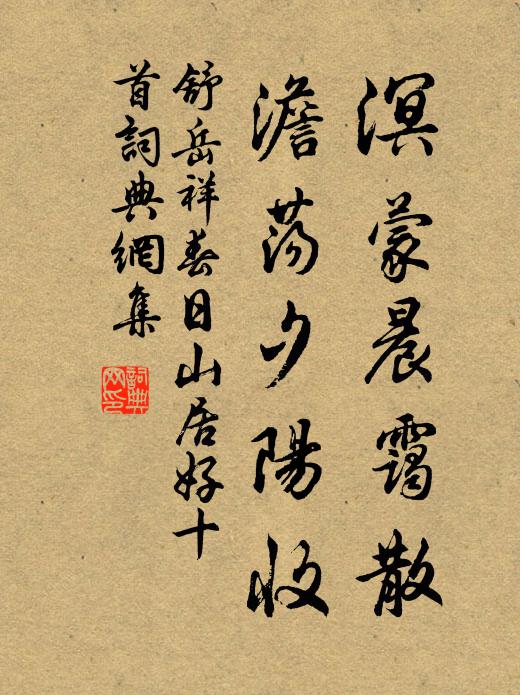 溟蒙晨靄散
澹蕩夕陽收
舒岳祥春日山居好十
首詞典網集
詞典
网印